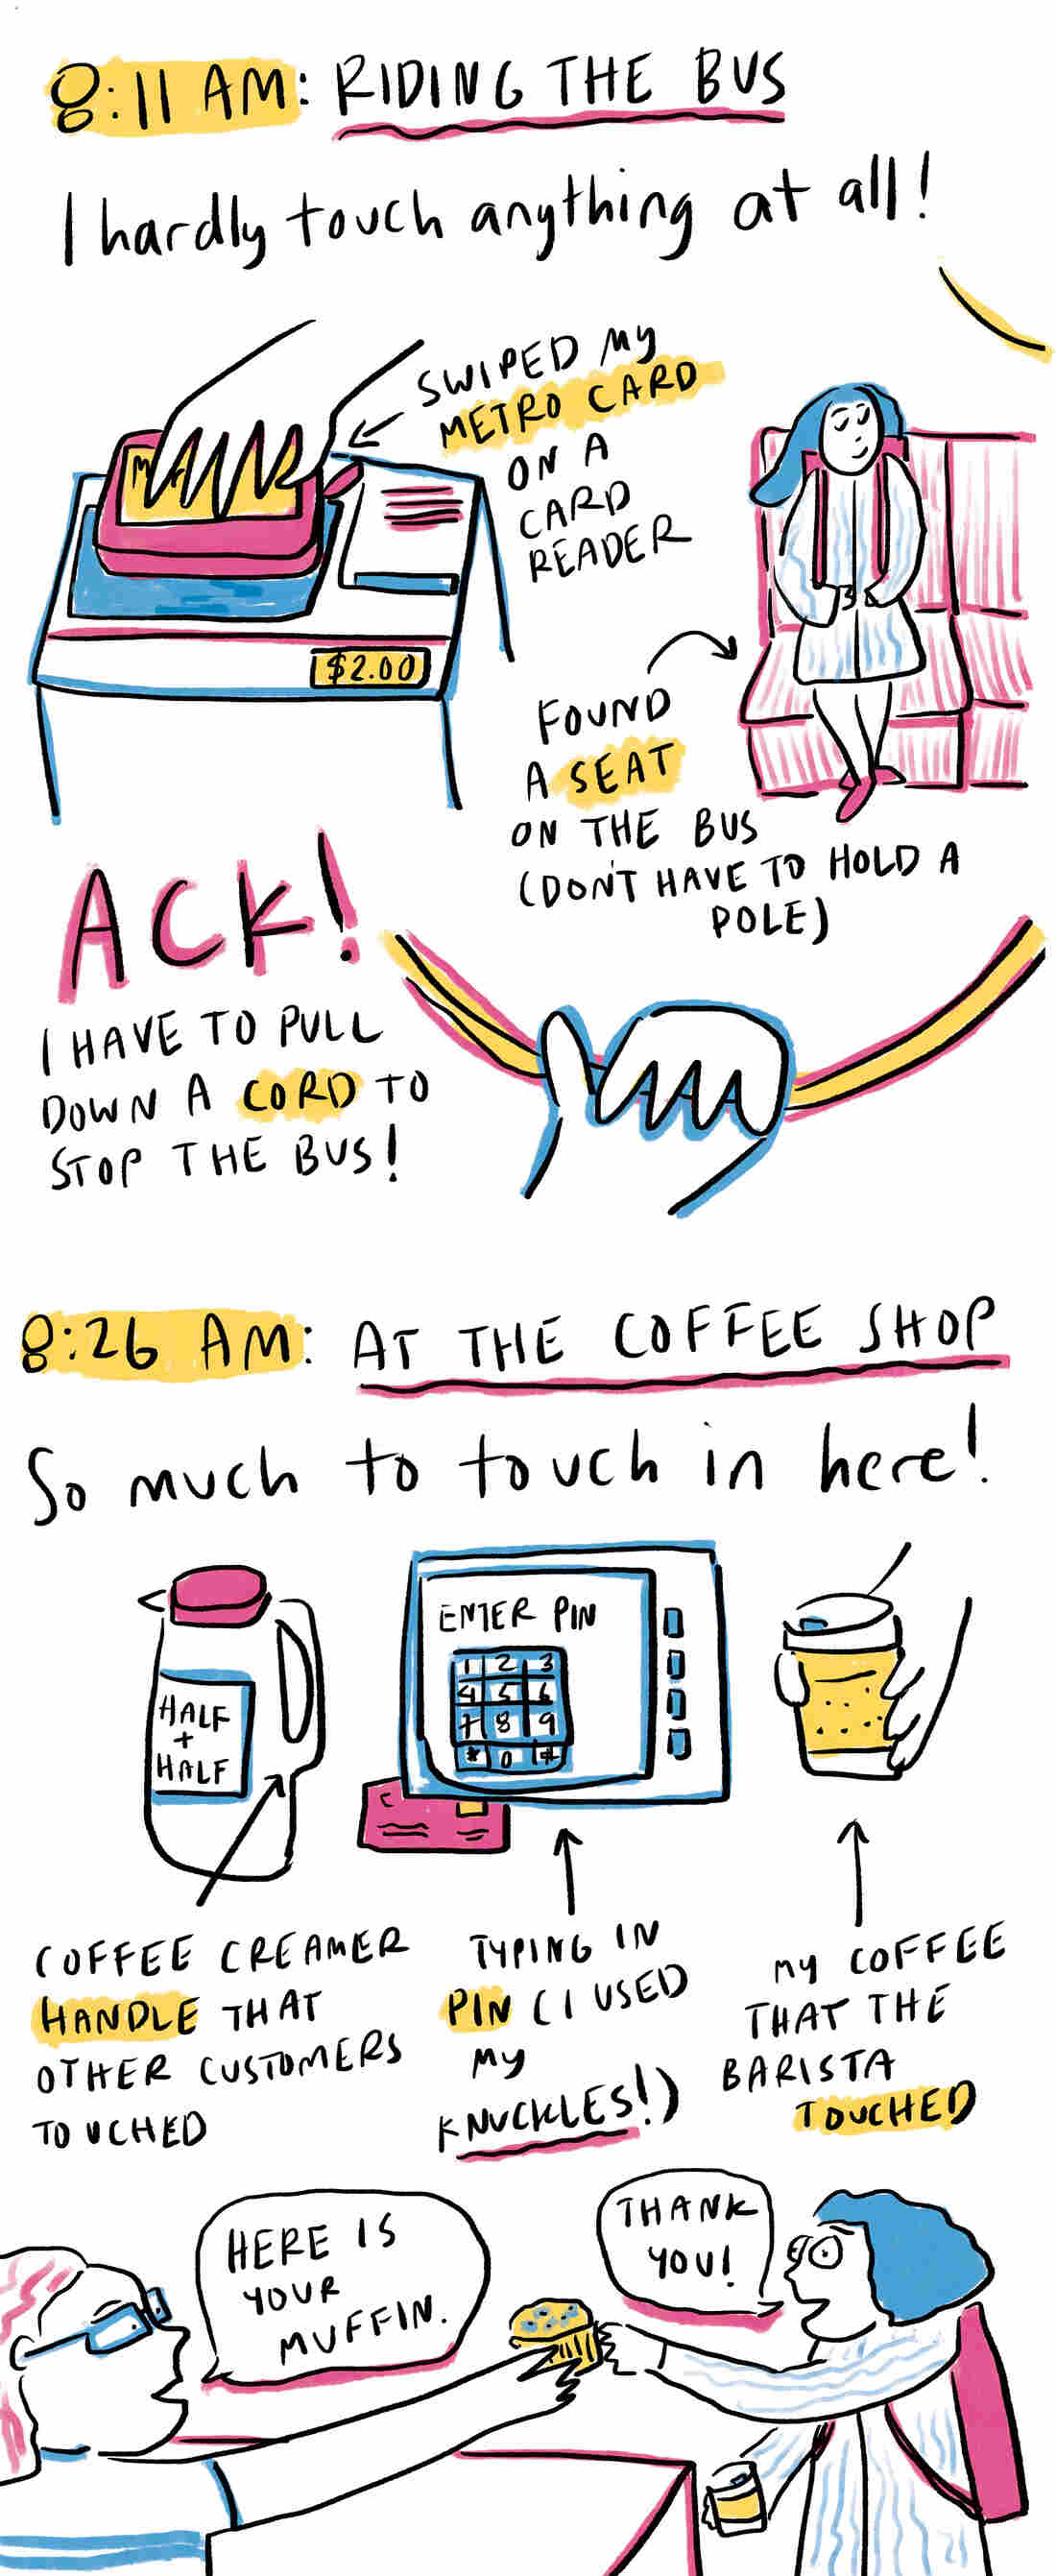 8:11 AM: RIDING THE BUS
I hardly touch anything at all!
SWIPED MY
METRO CARD
ON A
CARD
READER
$2.00
FOUND
A SEAT
ON THE BUS
(DON'T HAVE TO HOLD A
POLE)
ACK!
I HAVE TO PULL
DOWN A CORD TO
STOP THE BUS!
8:26 AM: AT THE COFFEE SHOP
So much to touch in here!
HALF
+
HALF
ENTER PIN
1 2 3
4 5 6
7 8 9
* 0 #
COFFEE CREAMER
HANDLE THAT
OTHER CUSTOMERS
TOUCHED
TYPING IN
PIN (I USED
MY
KNUCKLES!)
MY COFFEE
THAT THE
BARISTA
TOUCHED
HERE IS
YOUR
MUFFIN.
THANK
YOU!